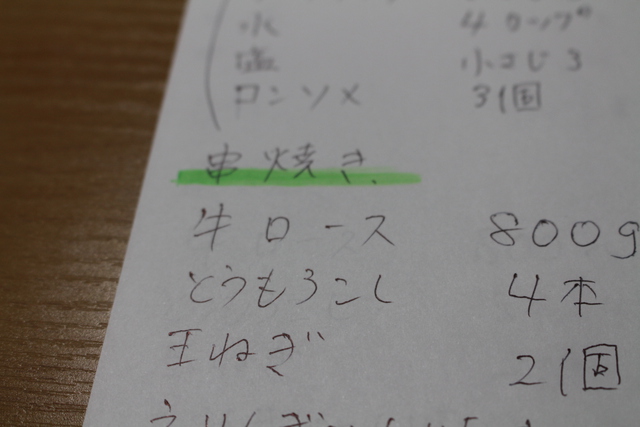 水 4カップ
塩 小さじ3
コンソメ 3個
串焼き
牛ロース 800g
とうもろこし 4本
玉ねぎ 2個